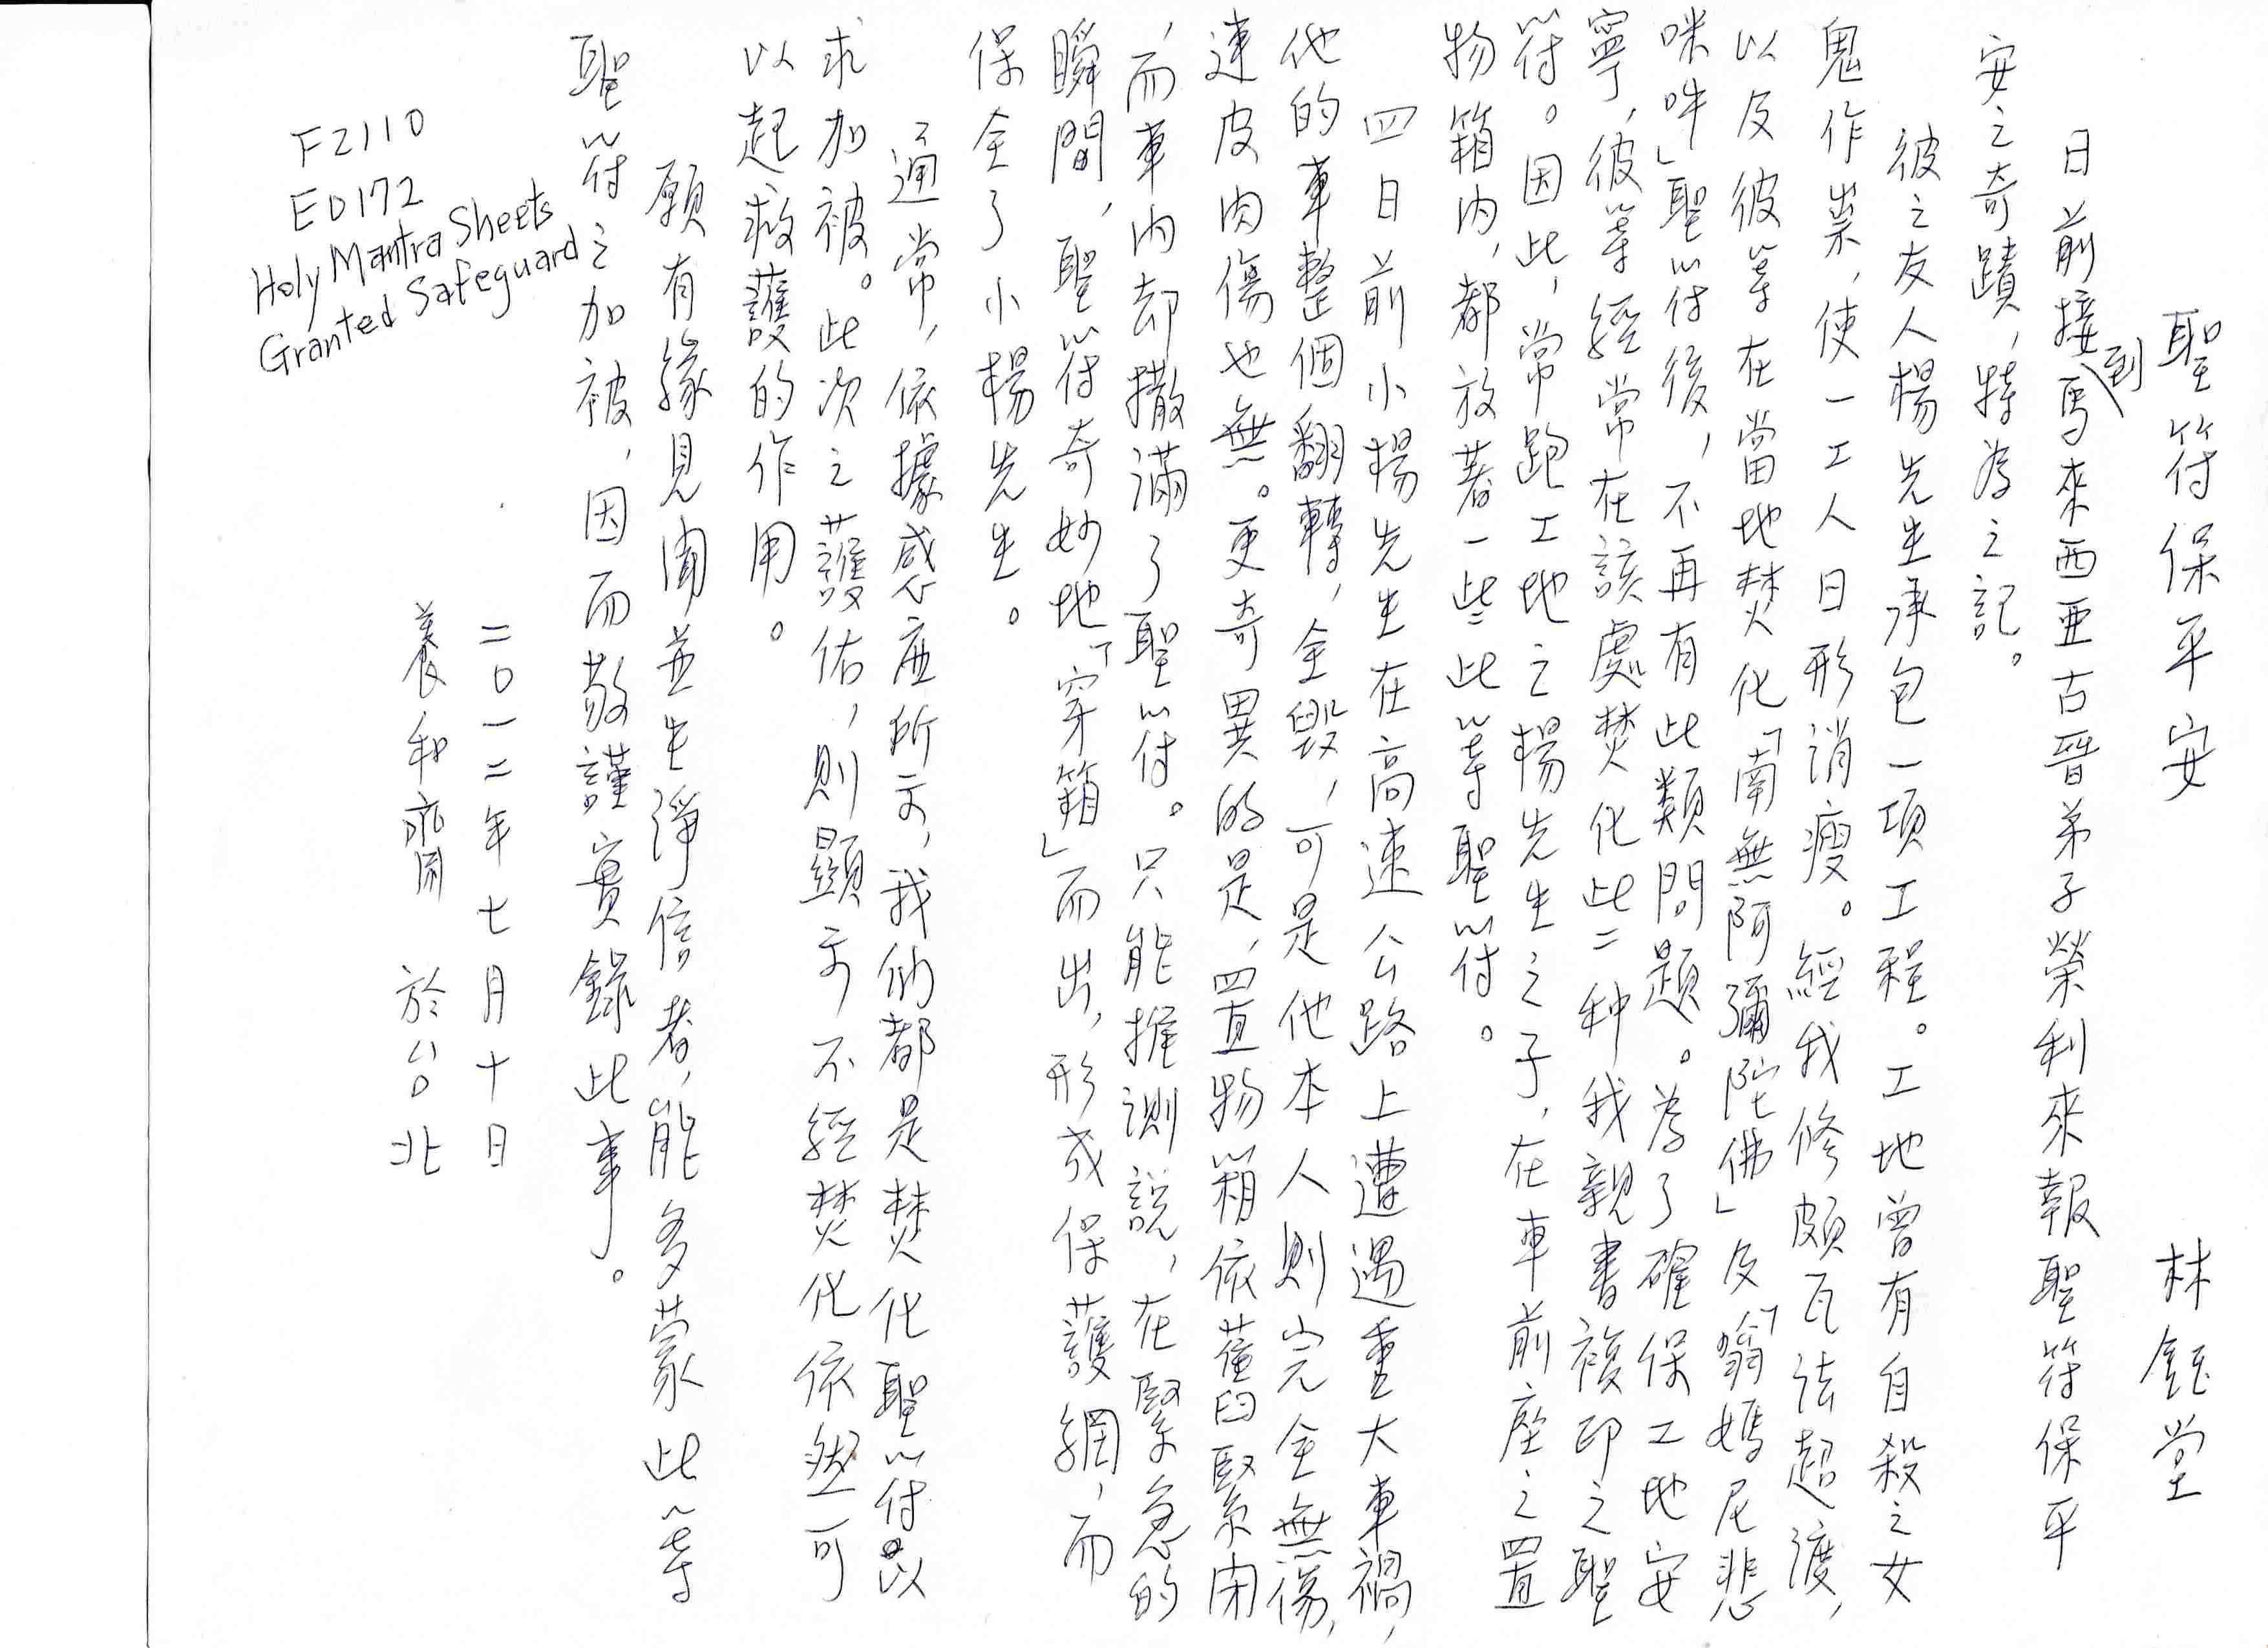 聖符保平安　　林鈺堂
日前接到馬來西亞古晉弟子榮利來報聖符保平
安之奇蹟，特為之記。
彼之友人楊先生承包一項工程。工地曾有自殺之女
鬼作祟，使一工人日形消瘦。經我修頗瓦法超渡，
以及彼等在當地焚化「南無阿彌陀佛」及「嗡嫣尼悲
咪吽」聖符後，不再有此類問題。為了確保工地安
寧，彼等經常在該處焚化此二种我親書複印之聖
符。因此，常跑工地之楊先生之子，在車前座之置
物箱內，都放著一些此等聖符。
四日前小楊先生在高速公路上遭遇重大車禍，
他的車整個翻轉，全毀，可是他本人則完全無傷，
連皮肉傷也無。更奇異的是，置物箱依舊緊閉
，而車內却撒滿了聖符。只能推測說，在緊急的
瞬間，聖符奇妙地「穿箱」而出，形成保護網，而
保全了小楊先生。
通常，依據感應所示，我們都是焚化聖符以
求加被。此次之護佑，則顯示不經焚化依然可
以起救護的作用。
願有緣見聞並生淨信者，能多蒙此等
聖符之加被，因而敬謹實錄此事。
二〇一二年七月十日
養和齋　於台北
FZ110
ED172
Holy Mantra Sheets
Granted Safeguard